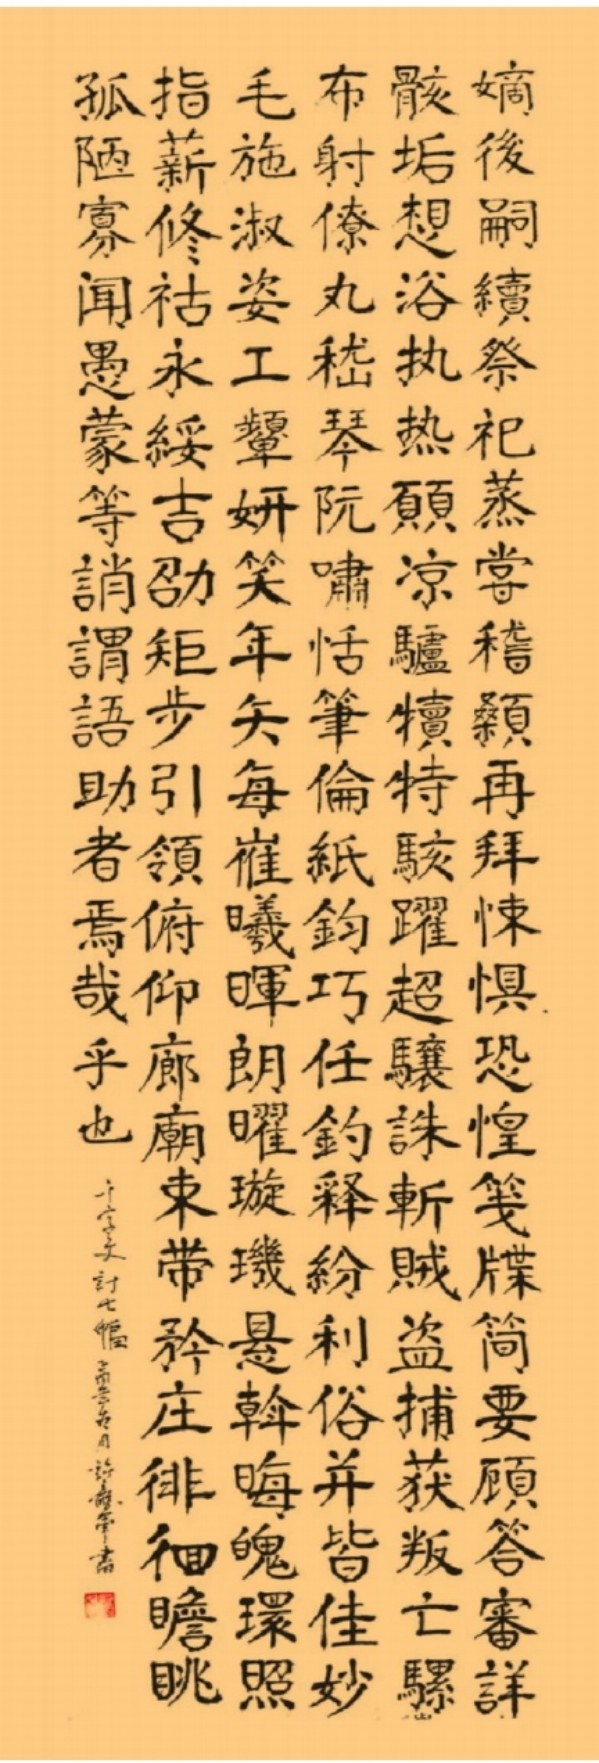 嫡後嗣續祭祀蒸尝稽顙再拜悚惧恐惶笺牒简要顾答審詳
骸垢想浴执热願凉驢犢特駭躍超驤誅斬賊盗捕获叛亡騾
布射僚丸嵇琴阮嘯恬筆倫紙鈞巧任釣释紛利俗并皆佳妙
毛施淑姿工顰妍笑年矢每崔曦暉朗曜璇璣悬斡晦魄環照
指薪修祜永綏吉劭矩步引領俯仰廊廟束带矜庄徘徊瞻眺
孤陋寡闻愚蒙等誚謂語助者焉哉乎也
千字文計七幅